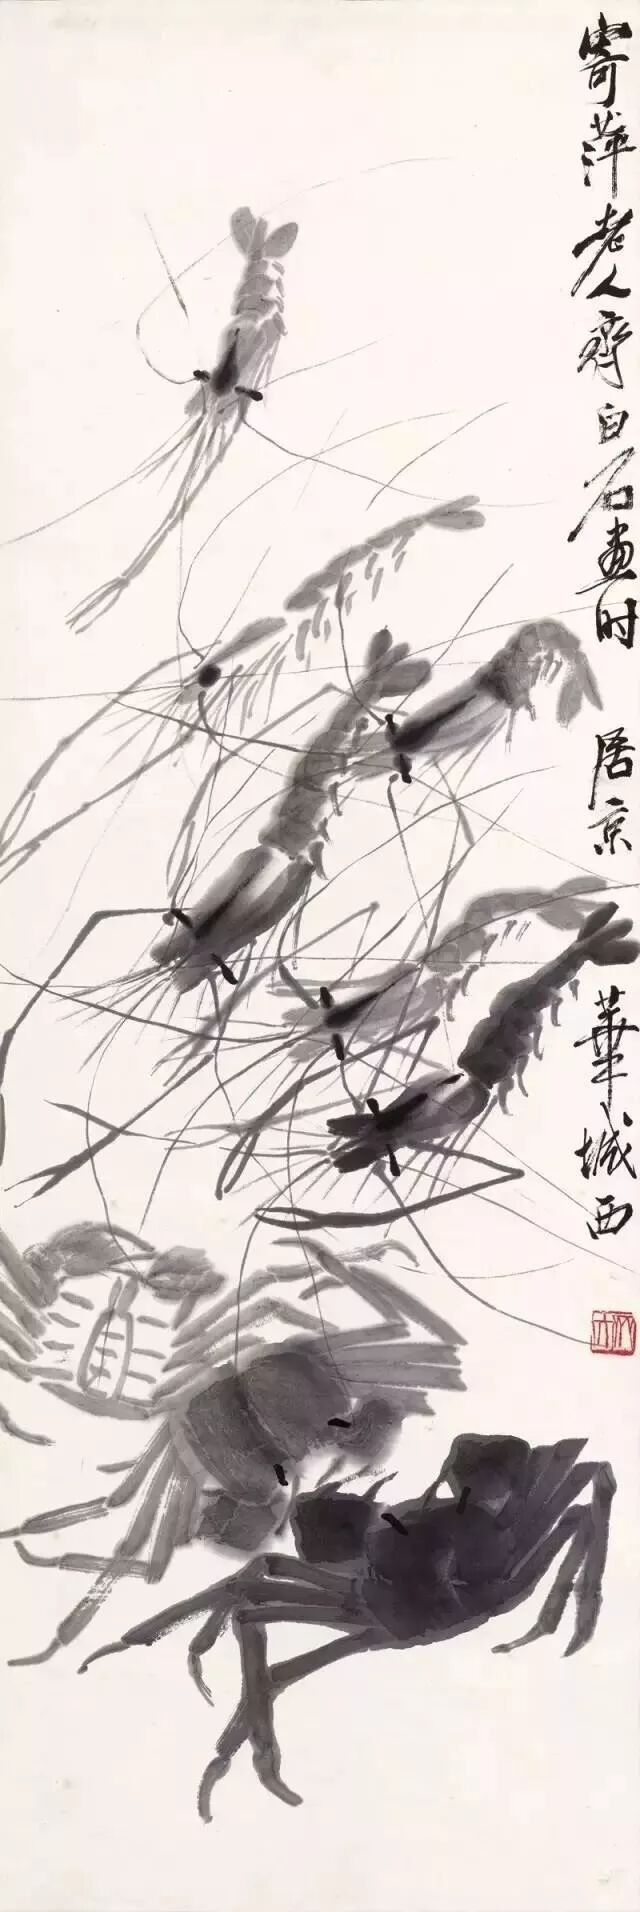 寄萍老人齊白石畫时居京華城西